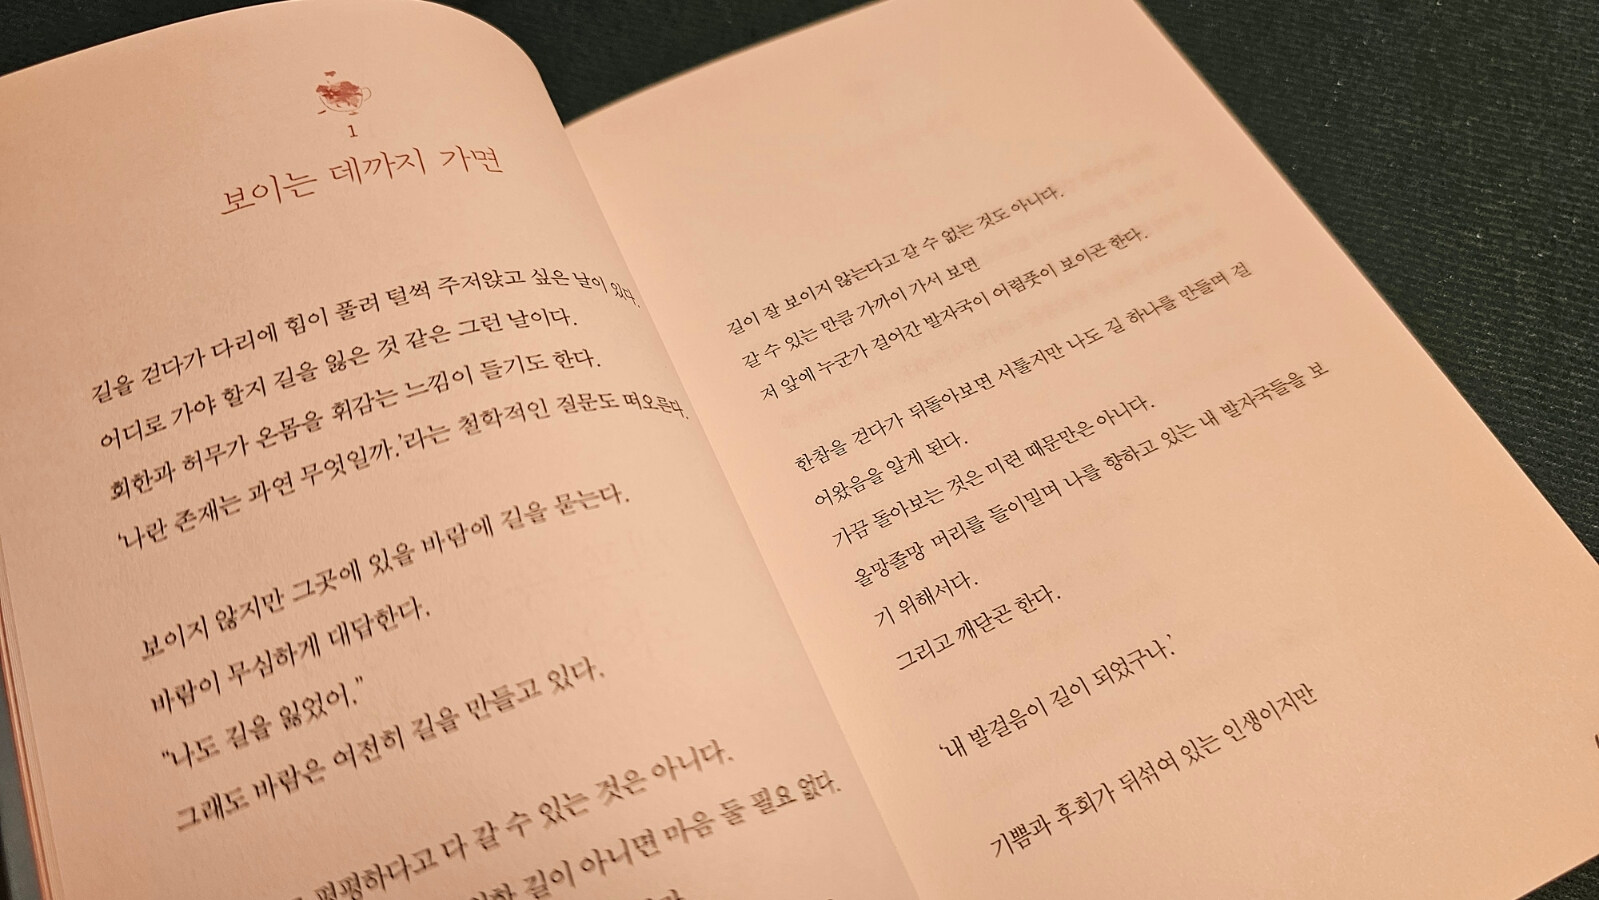 1
보이는 데까지 가면
길을 걷다가 다리에 힘이 풀려 털썩 주저앉고 싶은 날이 있다.
어디로 가야 할지 길을 잃은 것 같은 그런 날이다.
회한과 허무가 온몸을 휘감는 느낌이 들기도 한다.
‘나란 존재는 과연 무엇일까.’라는 철학적인 질문도 떠오른다.
보이지 않지만 그곳에 있을 바람에 길을 묻는다.
바람이 무심하게 대답한다.
“나도 길을 잃었어.”
그래도 바람은 여전히 길을 만들고 있다.
평평하다고 다 갈 수 있는 것은 아니다.
길이 아니면 마음 둘 필요 없다.
길이 잘 보이지 않는다고 갈 수 없는 것도 아니다.
갈 수 있는 만큼 가까이 가서 보면
저 앞에 누군가 걸어간 발자국이 어렴풋이 보이곤 한다.
한참을 걷다가 뒤돌아보면 서툴지만 나도 길 하나를 만들며 걸
어왔음을 알게 된다.
가끔 돌아보는 것은 미련 때문만은 아니다.
올망졸망 머리를 들이밀며 나를 향하고 있는 내 발자국들을 보
기 위해서다.
그리고 깨닫곤 한다.
‘내 발걸음이 길이 되었구나.’
기쁨과 후회가 뒤섞여 있는 인생이지만